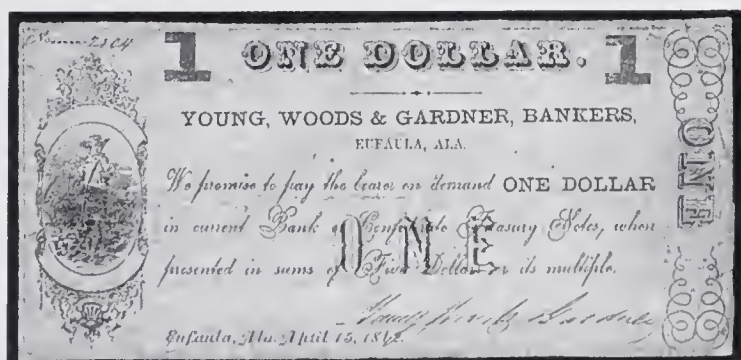 No 2104
1 ONE DOLLAR. 1
YOUNG, WOODS & GARDNER, BANKERS,
EUFAULA, ALA.
We promise to pay the bearer on demand ONE DOLLAR
in current Bank or Confederate Treasury Notes, when
presented in sums of Five Dollars or its multiple.
ONE
Young Woods & Gardner
Eufaula, Ala. April 15, 1862.
ONE